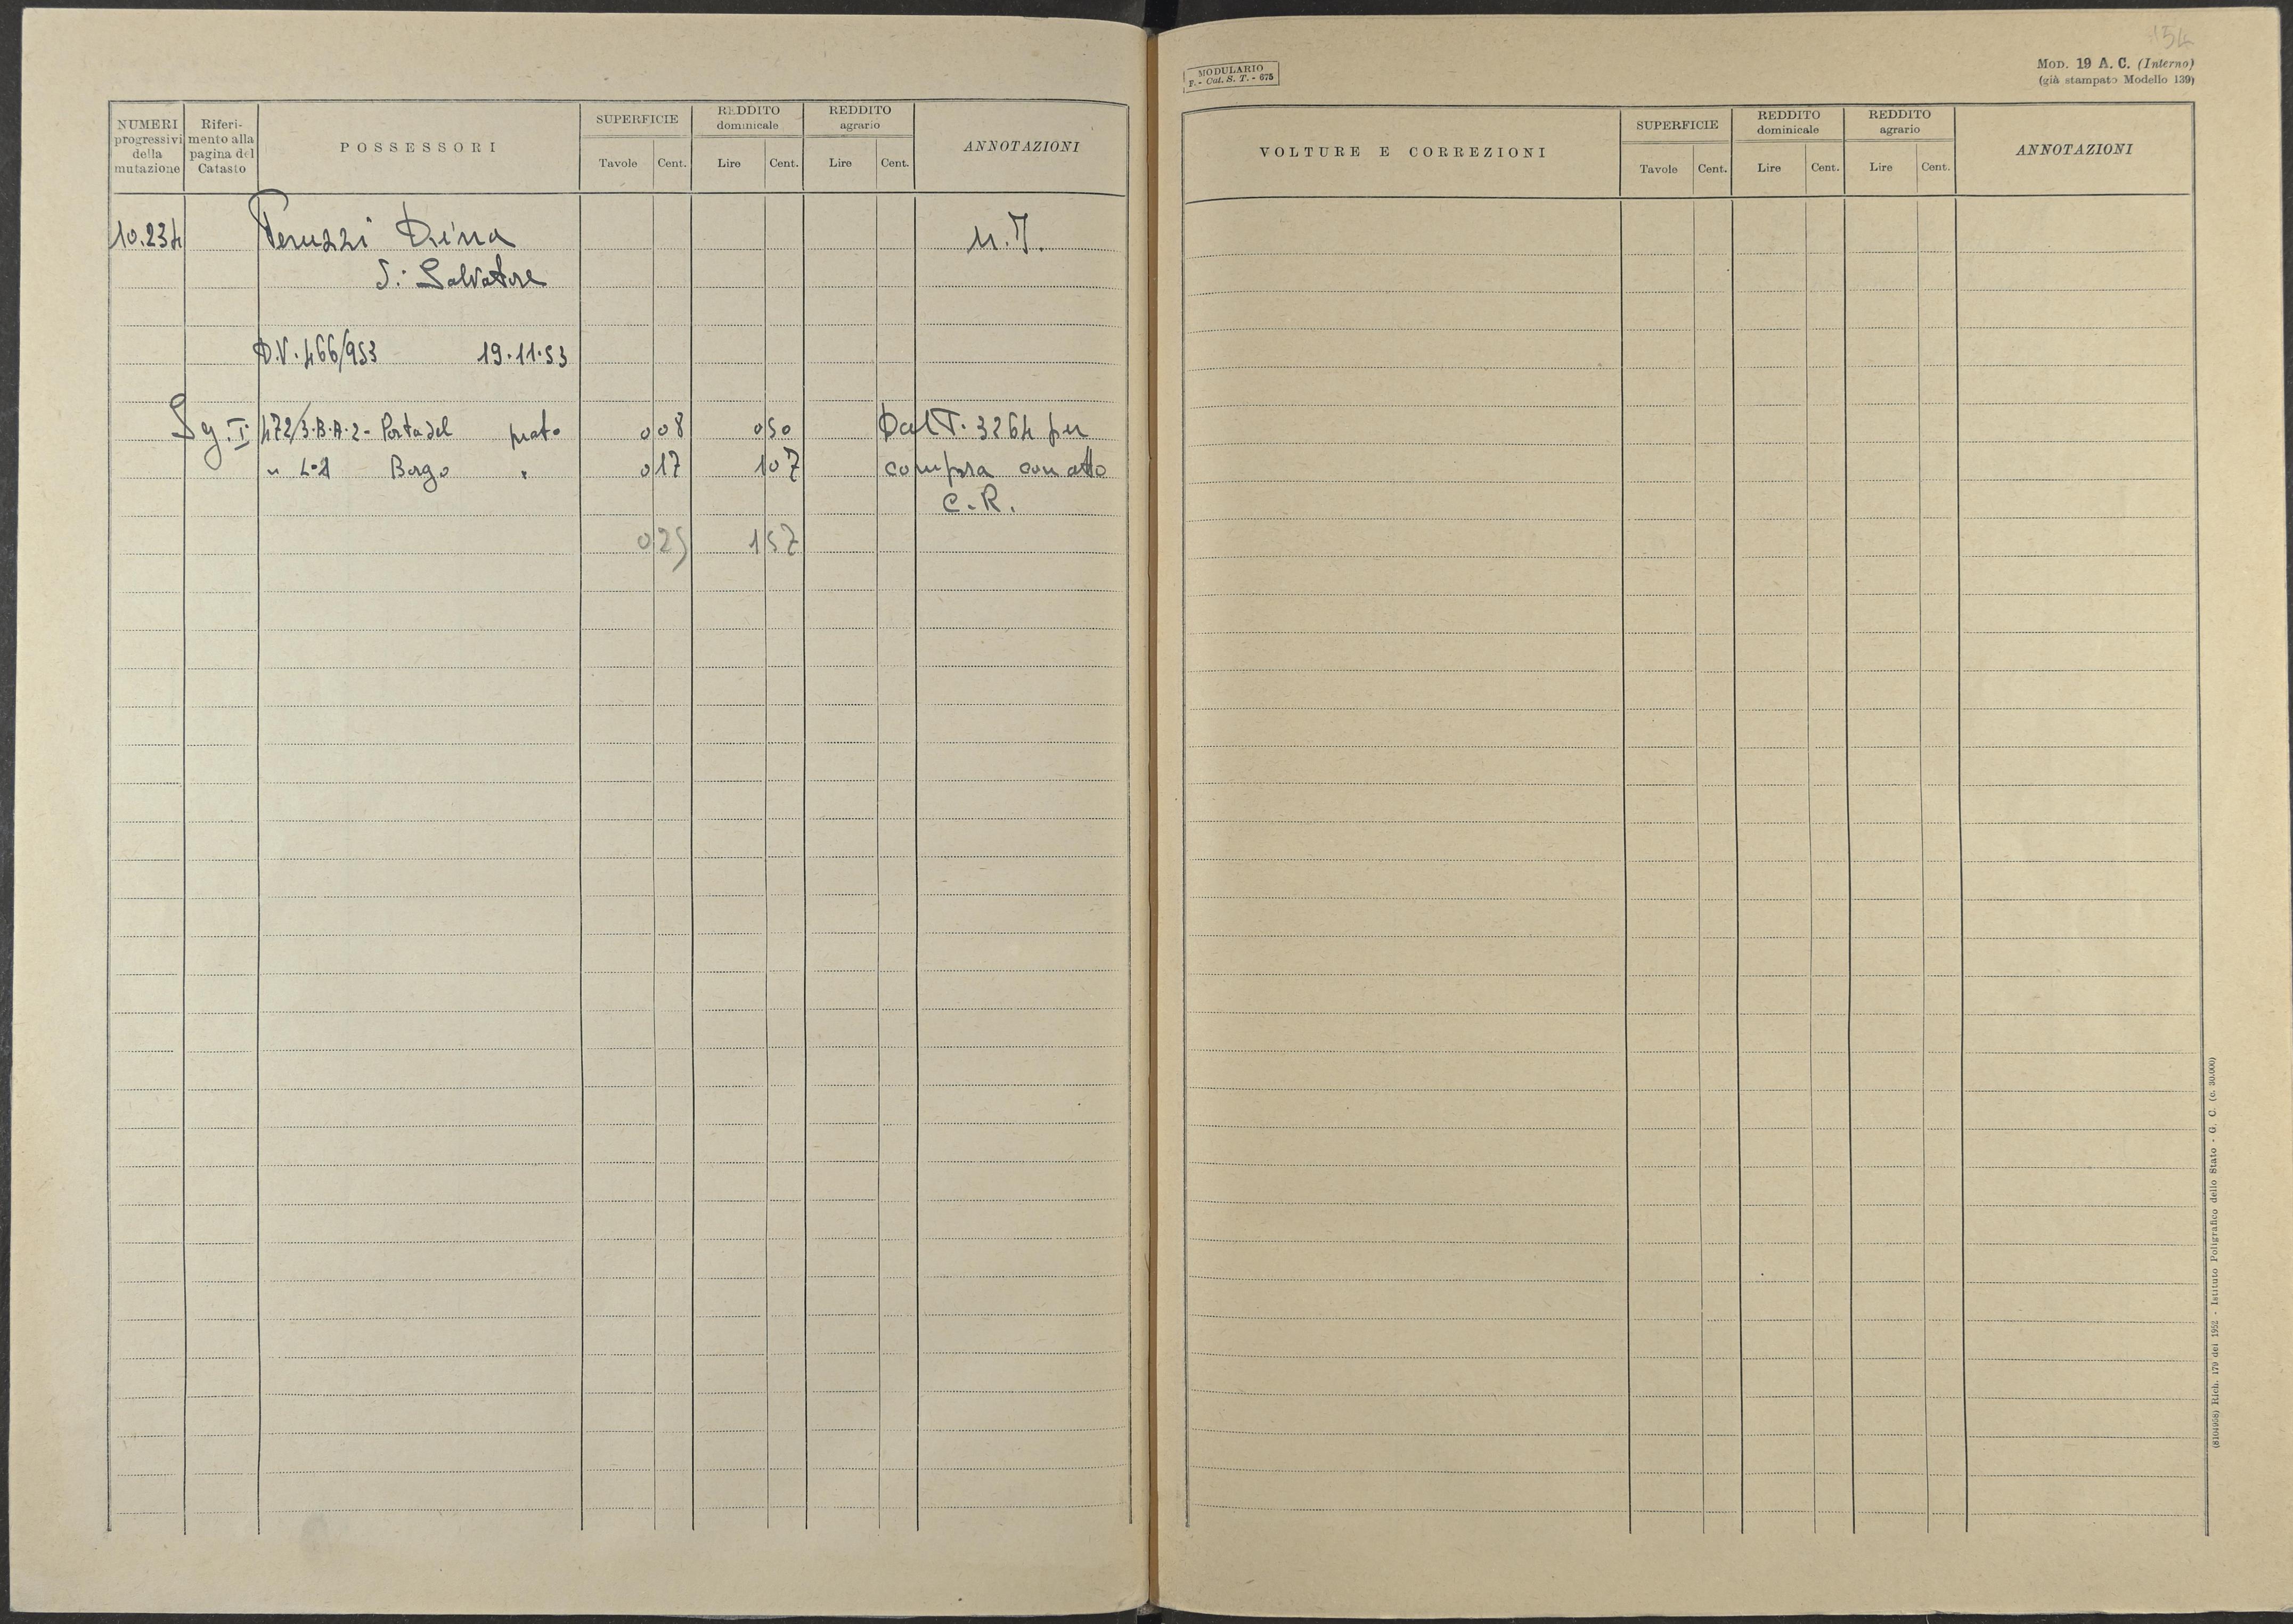 NUMERI progressivi della mutazione
Riferimento alla pagina del Catasto
POSSESSORI
SUPERFICIE
Tavole Cent.
REDDITO dominicale
Lire Cent.
REDDITO agrario
Lire Cent.
ANNOTAZIONI
10.234 Peruzzi Dina
di Salvatore
D.V. 466/953 19.11.53
472/3.B.A.2 - Porta del prato 0 08 0 50 Dal T. 3264 per
" Borgo " 0 17 1 07 compra con atto
C.R.
0 25 1 57
154
MODULARIO
F. - Cat. S. T. - 675
MOD. 19 A. C. (Interno)
(già stampato Modello 139)
VOLTURE E CORREZIONI
SUPERFICIE
Tavole Cent.
REDDITO dominicale
Lire Cent.
REDDITO agrario
Lire Cent.
ANNOTAZIONI
Rich. 179 del 1952 - Istituto Poligrafico dello Stato - G. C. (c. 30.000)